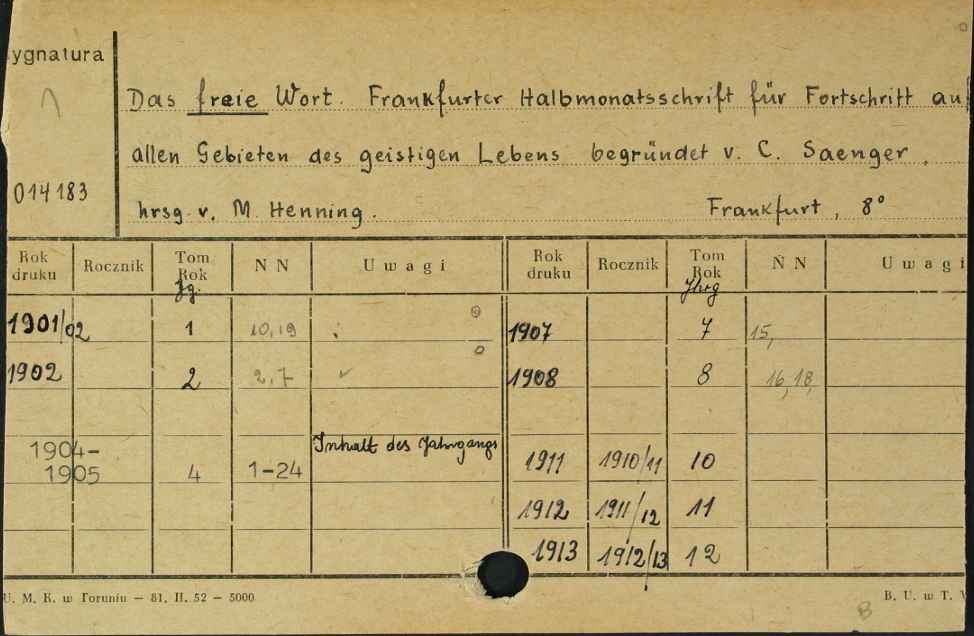 ygnatura
014183
Das freie Wort. Frankfurter Halbmonatsschrift für Fortschritt au
allen Gebieten des geistigen Lebens begründet v. C. Saenger,
hrsg. v. M. Henning. Frankfurt, 8°
Rok druku Rocznik Tom Rok Jg. NN Uwagi Rok druku Rocznik Tom Rok Jhrg NN Uwagi
1901/02 1 10,19 1907 7 15,
1902 2 2,7 1908 8 16,18,
1904-1905 4 1-24 Inhalt des Jahrgangs 1911 1910/11 10
1912 1911/12 11
1913 1912/13 12
U. M. K. w Toruniu — 81. II. 52 — 5000 B. U. w T.
B